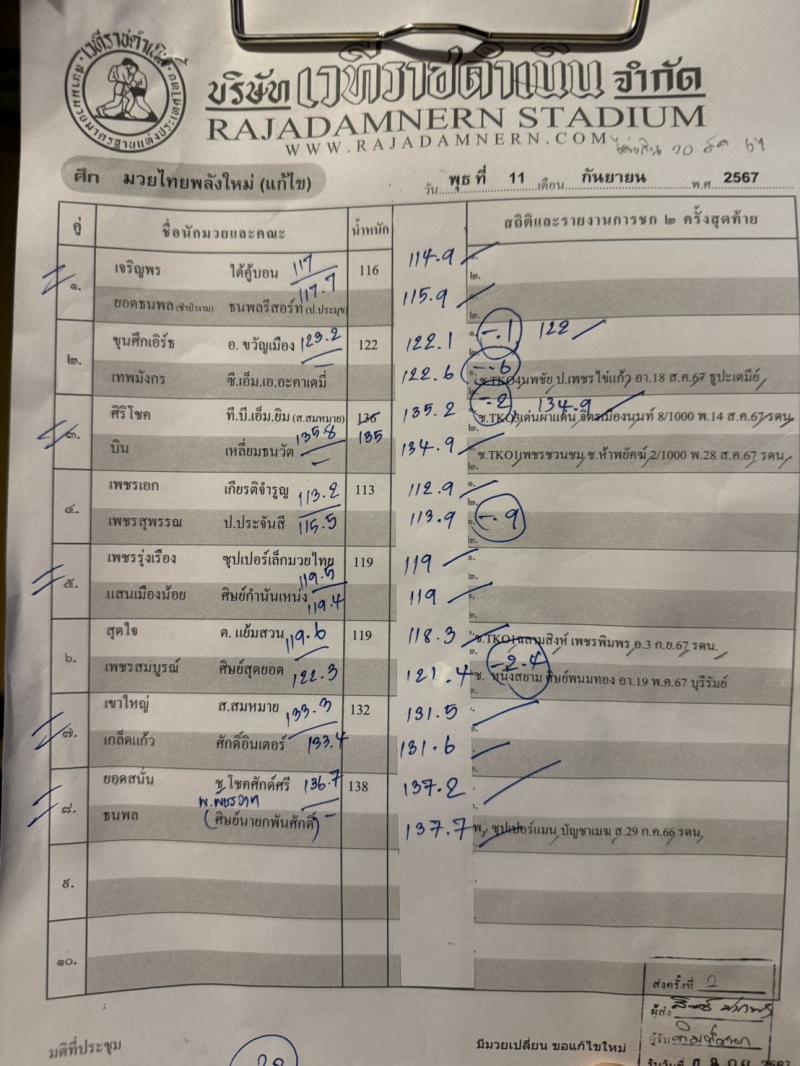 เวทีราชดำเนิน
สนามมวยมาตรฐานแห่งประเทศไทย
บริษัท เวทีราชดำเนิน จำกัด
RAJADAMNERN STADIUM
WWW.RAJADAMNERN.COM
ศึก มวยไทยพลังใหม่ (แก้ไข)
วัน พุธ ที่ 11 เดือน กันยายน พ.ศ 2567
คู่ ชื่อนักมวยและคณะ น้ำหนัก สถิติและรายงานการชก ๒ ครั้งสุดท้าย
๑. เจริญพร ใต้คู้บอน 117 116 114.9 ๑.
๒.
ยอดธนพล (ชำป่างาม) ธนพลรีสอร์ท (ป.ประมุข) 117.7 115.9
๒. ขุนศึกเอิร์ธ อ. ขวัญเมือง 123.2 122 122.1 -.1 122
เทพมังกร ซี.เอ็ม.เอ.อะคาเดมี่ 122.6 -.6 ช.TKO4นพชัย ป.เพชรไข่แก้ว อา.18 ส.ค.67 ธูปะเตมีย์
๓. ศิริโชค ที.บี.เอ็ม.ยิม (ส.สมหมาย) 136 135.2 -.2 134.9
135 ช.TKO3เด่นผาแด้น จิตรเมืองนนท์ 8/1000 พ.14 ส.ค.67 รดน.
บิน เหลี่ยมธนวัต 135.8 134.9 ช.TKO1เพชรชวนชม ช.ห้าพยัคฆ์ 2/1000 พ.28 ส.ค.67 รดน.
๔. เพชรเอก เกียรติจำรูญ 113.2 113 112.9
เพชรสุพรรณ ป.ประจันสี 115.5 113.9 -.9
๕. เพชรรุ่งเรือง ซุปเปอร์เล็กมวยไทย 119.5 119 119
แสนเมืองน้อย ศิษย์กำนันเหน่ง 119.4 119
๖. สุดใจ ต. แย้มสวน 119.6 119 118.3 ช.TKO1ฉลามสิงห์ เพชรพิมพร อ.3 ก.ย.67 รดน.
เพชรสมบูรณ์ ศิษย์สุดยอด 122.3 121.4 -2.4 ช. หนึ่งสยาม ศิษย์พนมทอง อา.19 พ.ค.67 บุรีรัมย์
๗. เขาใหญ่ ส.สมหมาย 133.3 132 131.5
เกล็ดแก้ว ศักดิ์อินเตอร์ 133.4 131.6
๘. ยอดสนั่น ช.โชคศักดิ์ศรี 136.7 138 137.2
ธนพล (ศิษย์นายกพันศักดิ์) 137.7 พ. ซุปเปอร์แมน บัญชาเมฆ ส.29 ก.ค.66 รดน.
๙.
๑๐.
ส่งครั้งที่ 2
ผู้ส่ง
ผู้รับ
มติที่ประชุม มีมวยเปลี่ยน ขอแก้ไขใหม่